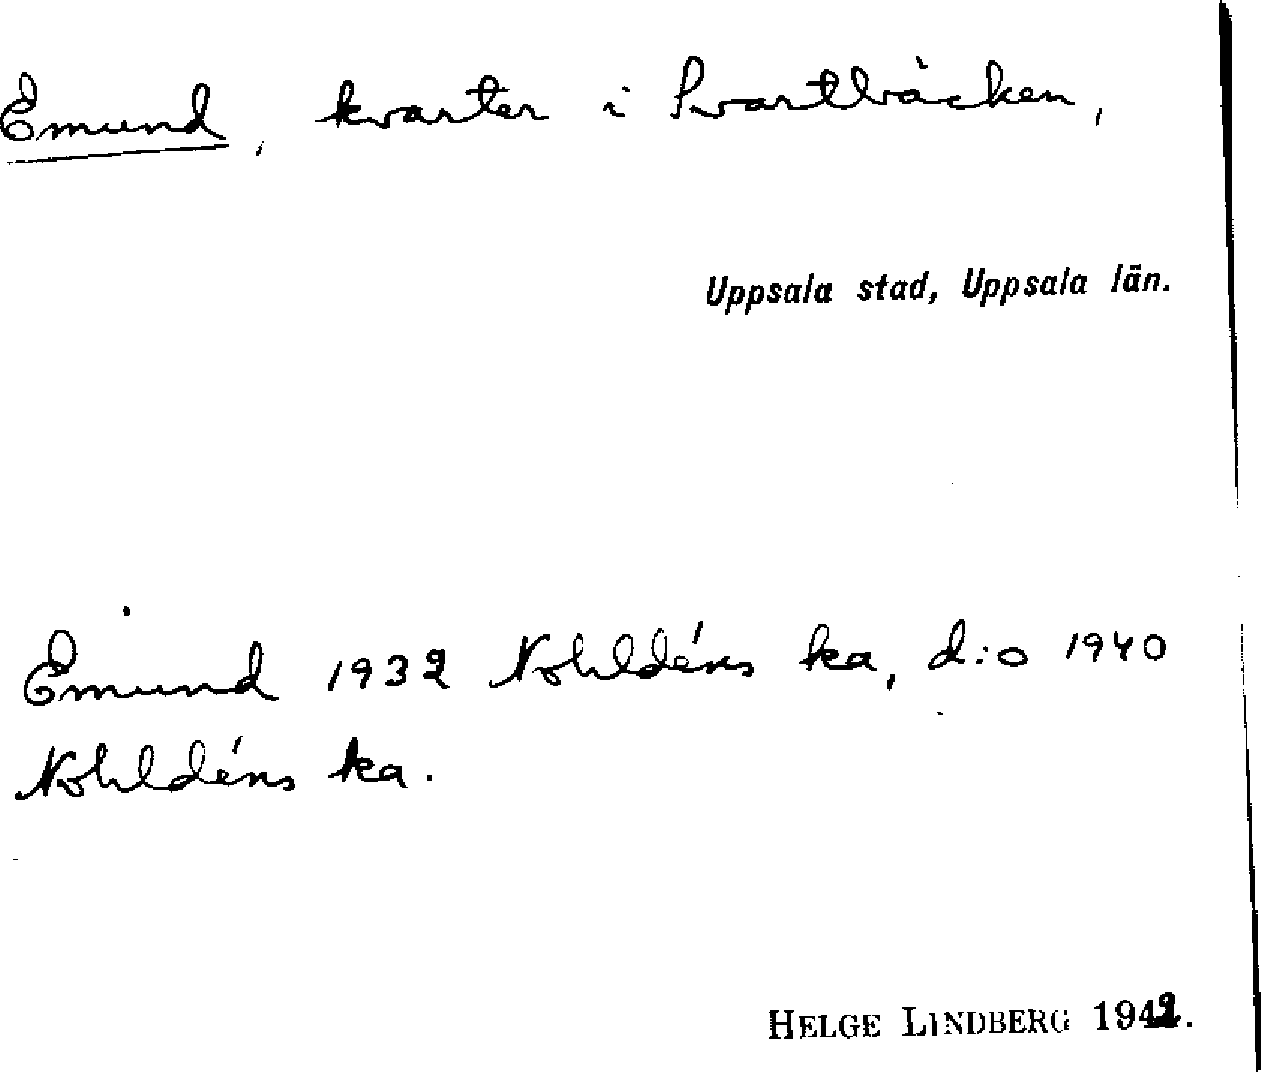 Emund, kvarter i Svartbäcken,
Uppsala stad, Uppsala län.
Emund 1932 Nohldéns ka, d:o 1940
Nohldéns ka.
HELGE LINDBERG 1942.